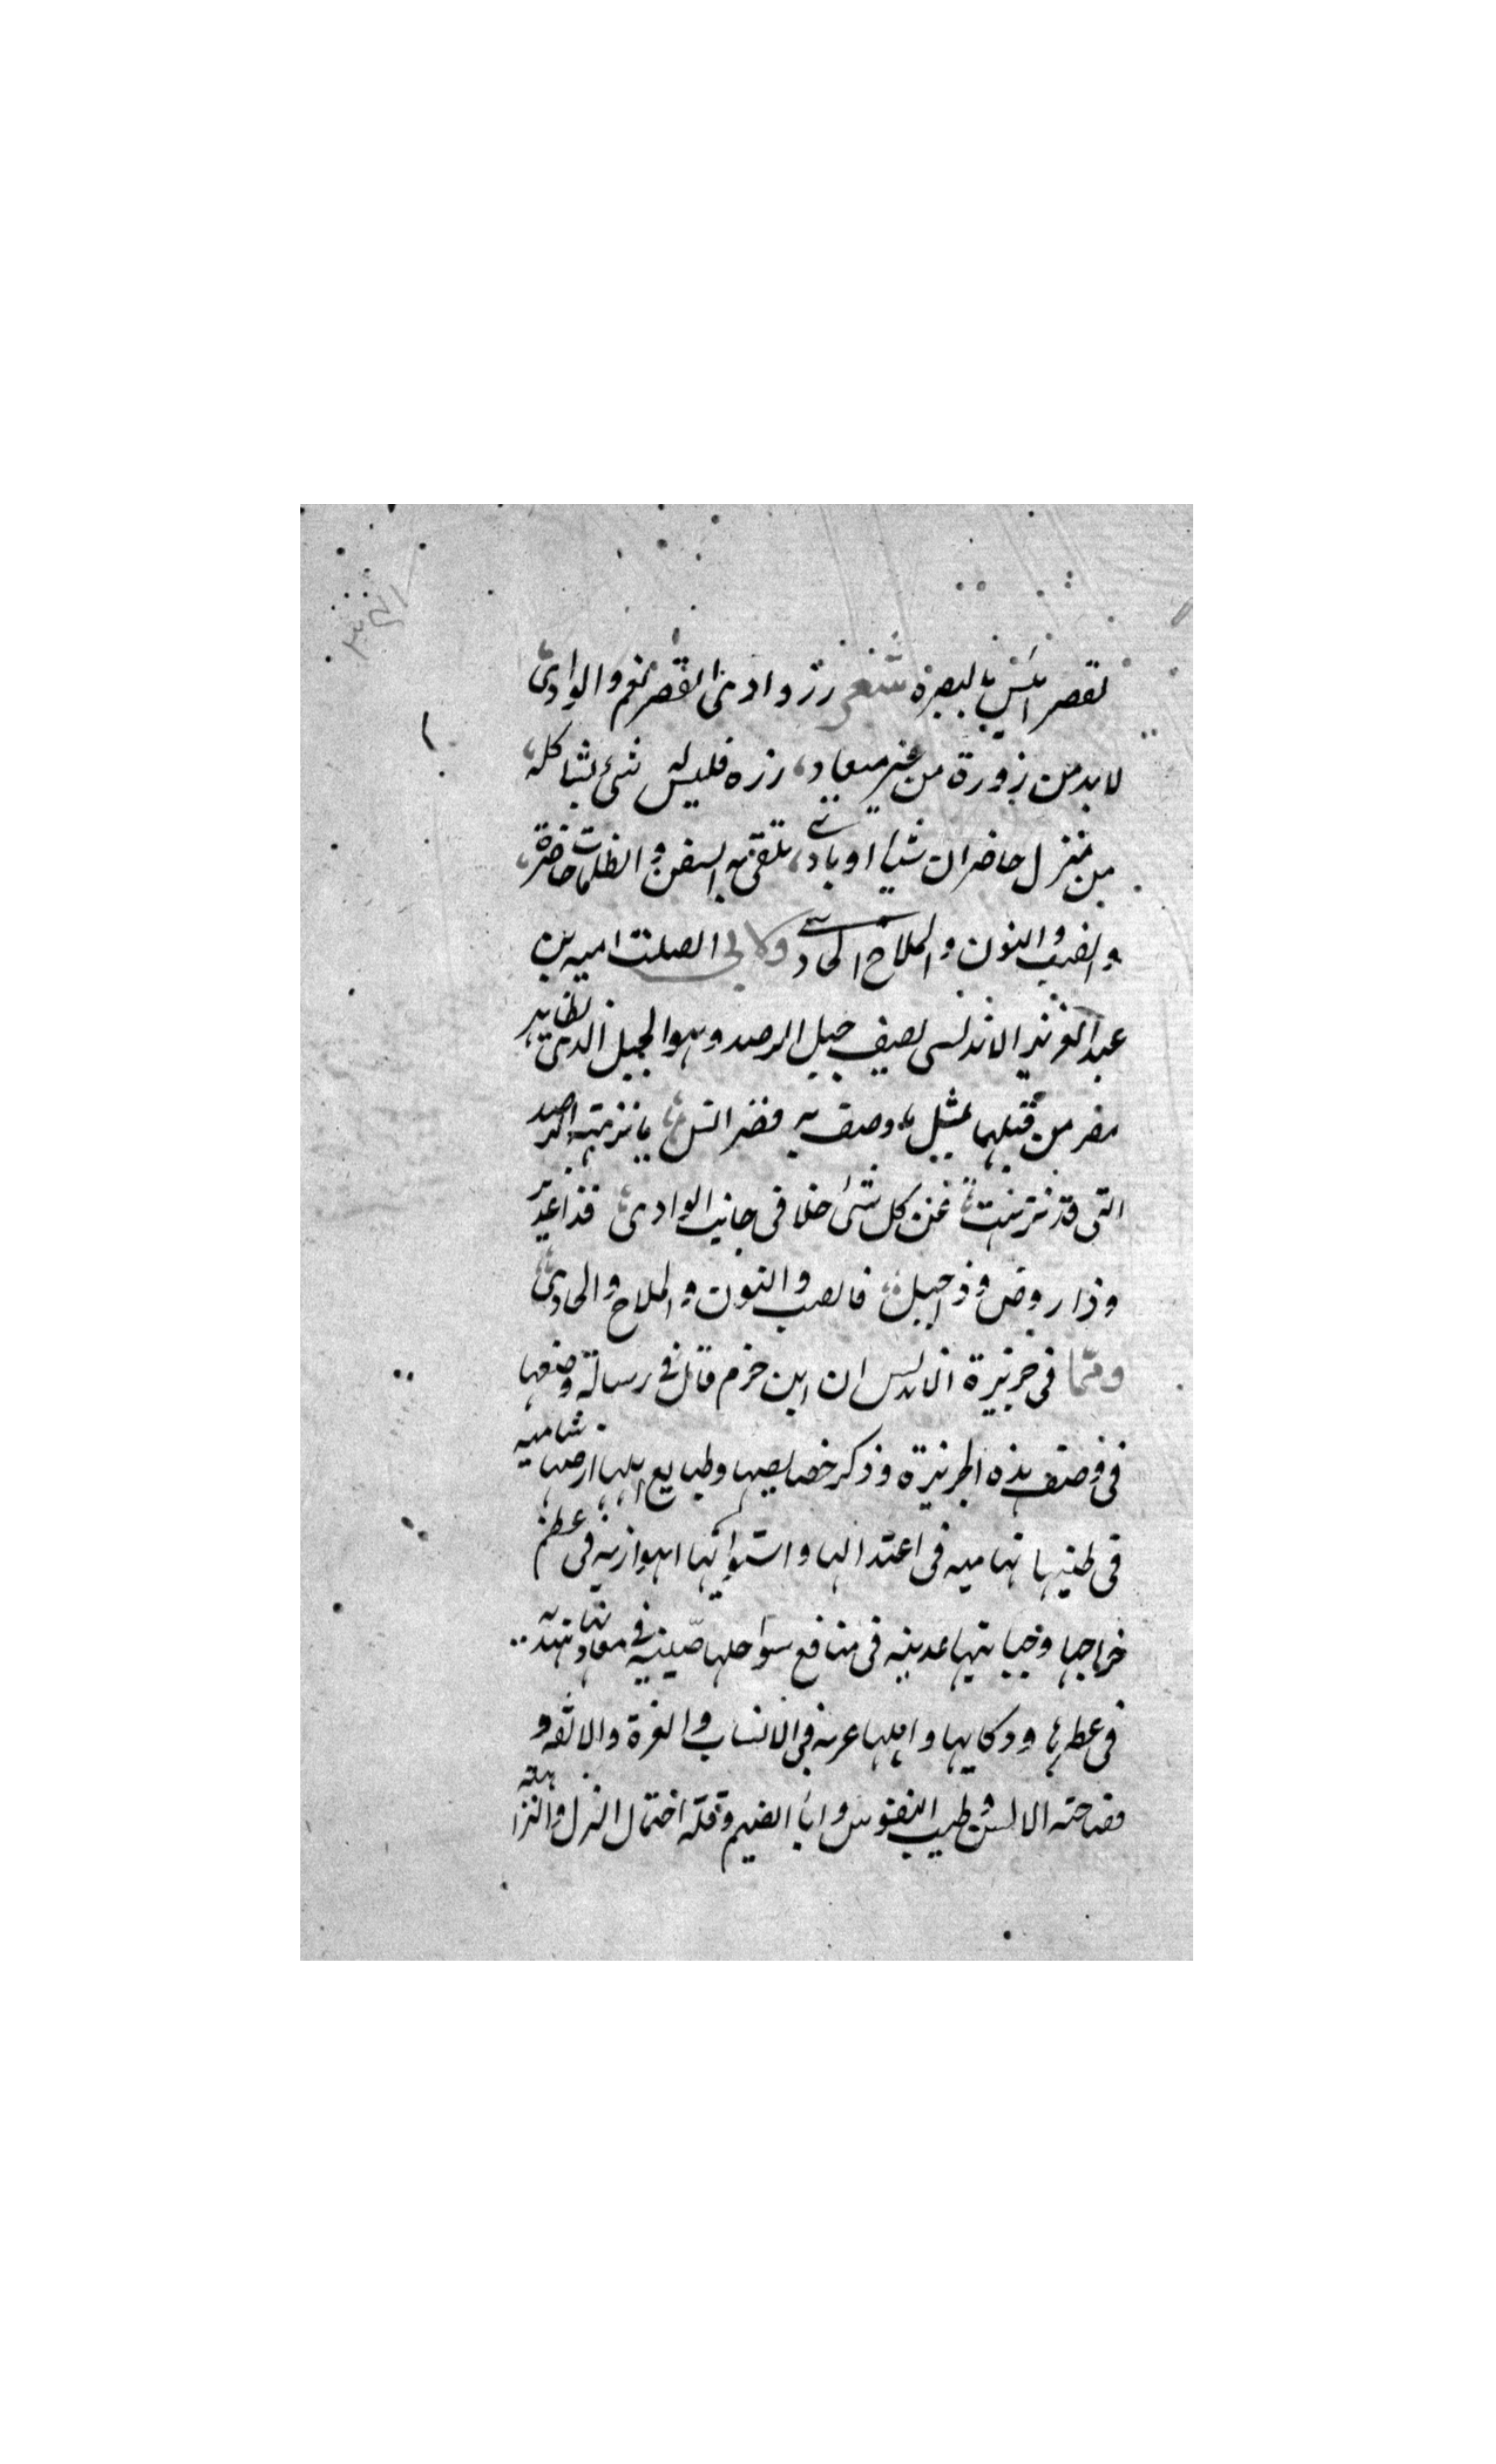 لقصر انس بالبصرة شعر زر وادى القصر نعم والوادى
لا بد من زورة من غير ميعاد، زره فليس له شئ يشاكله،
من منزل حاضر ان شيت او بادى، تلقى به السفن والظلمات حاضرة،
والضب والنون والملاح الحادى ولابى الصلت اميه بن
عبد العزيز الاندلسى يصف جبل الرصد وهو الجبل الذى يظاهر
مصر من قبليها بمثل ما وصف به قصر انس يا نزهة الرصد
التى قد نزهت عن كل شئ خلا فى جانب الوادى فذا غدير
وذا روض وذا جبل فالضب والنون والملاح والحادى
ومما فى جزيرة الاندلس ان ابن حزم قال فى رسالة وضعها
فى وصف هذه الجزيرة وذكر خصايصها وطبايع اهلها ارضها شامية
فى طيبها تهامية فى اعتدالها واستوائها اهوازية فى عظم
خراجها وجبايتها عدنية فى منافع سواحلها صينية فى معادنها هندية
فى عطرها وذكايها واهلها عرب فى الانساب والعزة والانفة و
فصاحة الالسن وطيب النفوس وابا الضيم وقلة احتمال الذل والنزاهة